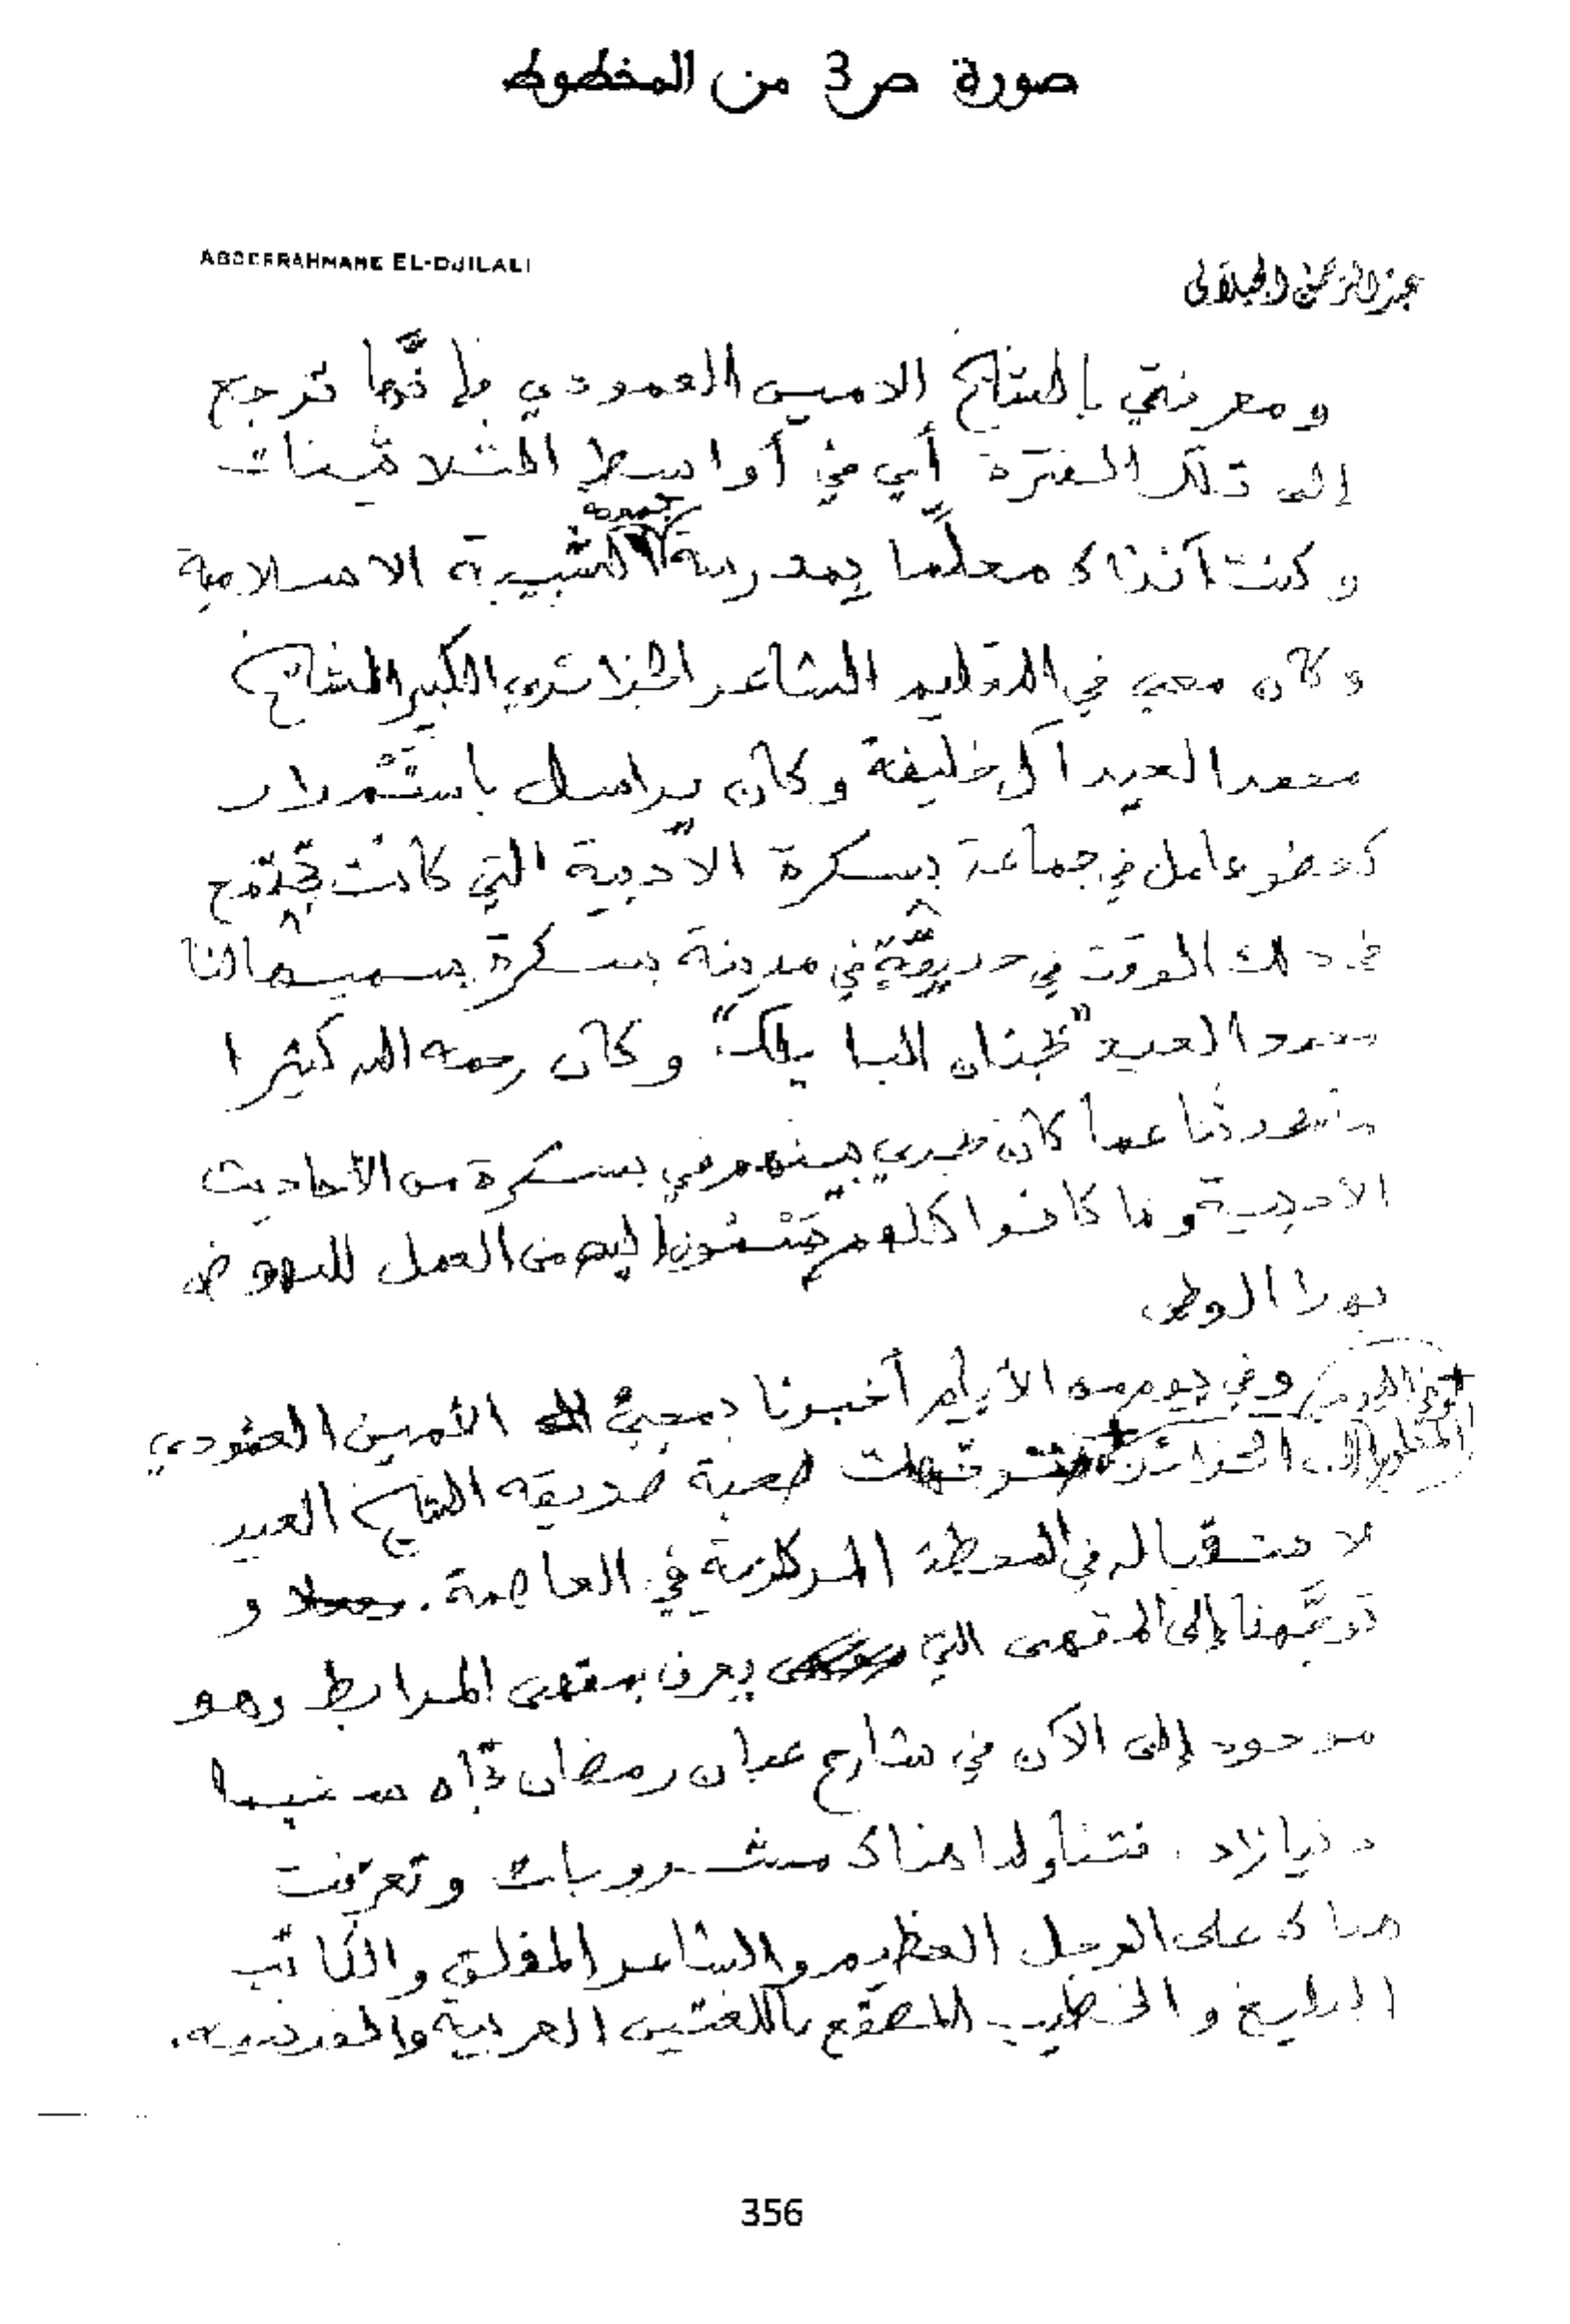 صورة ص3 من المخطوط
ABDERRAHMANE EL-DJILALI
عبد الرحمن الجيلالي
ومعرفتي بالشيخ الامين العمودي فإنَّها ترجع
إلى تلك الفترة أي في أواسط الثلاثينات
وكنت آنذاك معلّما بمدرسة جمعية الشبيبة الاسلامية
وكان معي في التعليم الشاعر الجزائري الكبير الشيخ
محمد العيد آل خليفة وكان يراسل باستمرار
كعضو عامل في جماعة بسكرة الأدبية التي كانت تجتمع
في ذلك الوقت في حديقة في مدينة بسكرة يسميها لنا
محمد العيد "بجنان البايلك" وكان رحمه الله كثيرا
ما يحدثنا عما كان يجري بينهم في بسكرة من الأحاديث
الأدبية وما كانوا كلهم إليه من العمل للنهوض
بهذا الوطن
وفي يوم من الأيام أخبرنا بمجيئ الأمين العمودي
إلى الجزائر صحبة صديقه الشيخ العيد
لاستقباله في المحطة المركزية في العاصمة. و
توجَّهنا إلى المقهى التي يعرف بمقهى المرابط وهو
موجود إلى الآن في شارع عبان رمضان تجاه سنيما
دنيازاد. فتناولنا هناك مشروبات وتعرفت
هناك على الرجل العظيم والشاعر المفلق والكاتب
البليغ والخطيب المصقع باللغتين العربية والفرنسية.
356